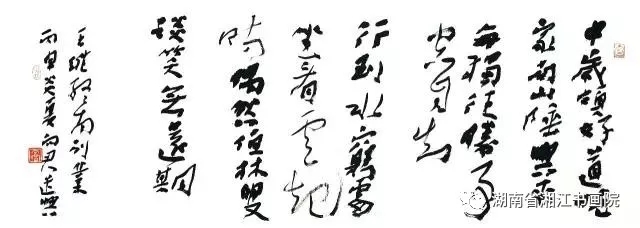 中歲頗好道晚
家南山陲興來
每獨往勝事
空自知
行到水窮處
坐看雲起
時偶然值林叟
談笑無還期
王維終南別業
丙申炎夏
湖南省湘江书画院